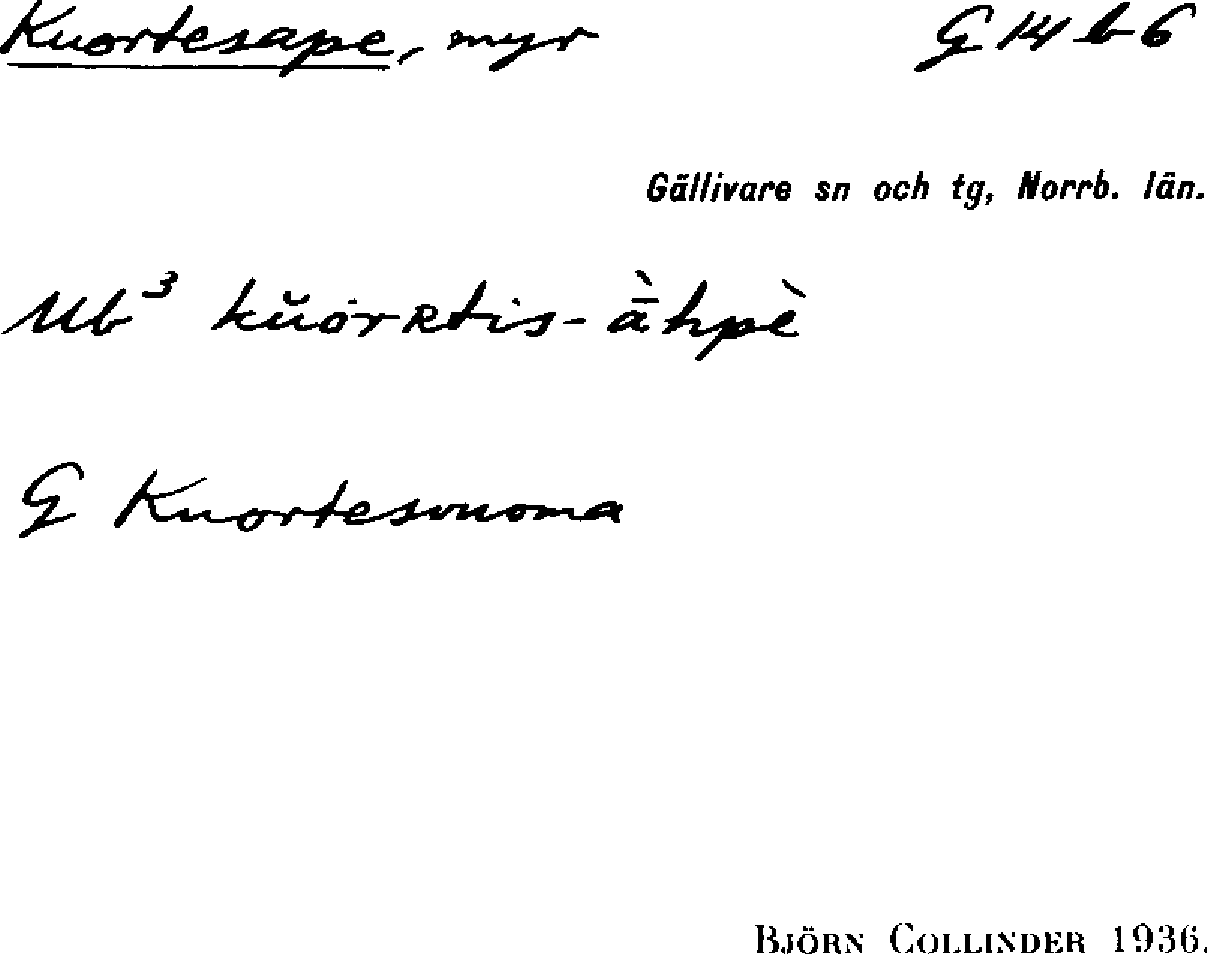 Kuortesape, myr G 14 b 6
Gällivare sn och tg, Norrb. län.
Ub³ kŭȯrʀtis-ā̀hpè
G Kuortesvuoma
BJÖRN COLLINDER 1936.